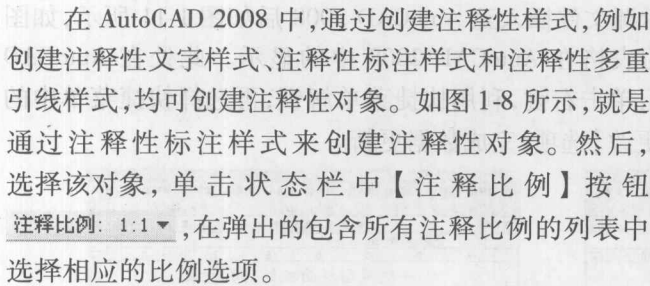 在 AutoCAD 2008 中,通过创建注释性样式,例如
创建注释性文字样式、注释性标注样式和注释性多重
引线样式,均可创建注释性对象。如图 1-8 所示,就是
通过注释性标注样式来创建注释性对象。然后,
选择该对象,单击状态栏中【注释比例】按钮
注释比例: 1:1 ,在弹出的包含所有注释比例的列表中
选择相应的比例选项。